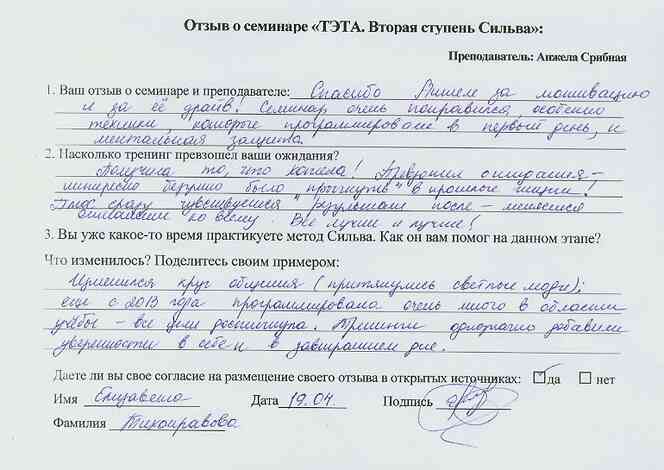 Отзыв о семинаре «ТЭТА. Вторая ступень Сильва»:
Преподаватель: Анжела Срибная
1. Ваш отзыв о семинаре и преподавателе: Спасибо за мотивацию
и за её драйв! Семинар очень понравился, особенно
техники, которые программировали в первый день, и
ментальная защита.
2. Насколько тренинг превзошел ваши ожидания?
Получила то, что хотела! Превзошел ожидания –
интересно безумно было "прыгнуть" в прошлые жизни!
Плюс сразу чувствуется результат после – меняется
отношение ко всему. Всё лучше и лучше!
3. Вы уже какое-то время практикуете метод Сильва. Как он вам помог на данном этапе?
Что изменилось? Поделитесь своим примером:
Изменился круг общения (притянулись светлые люди);
еще с 2013 года программировала очень много в области
учёбы – все цели достигнута. Тренинги однозначно добавили
уверенности в себе и в завтрашнем дне.
Даете ли вы свое согласие на размещение своего отзыва в открытых источниках: да нет
Имя Елизавета Дата 19.04. Подпись
Фамилия Тихонравова